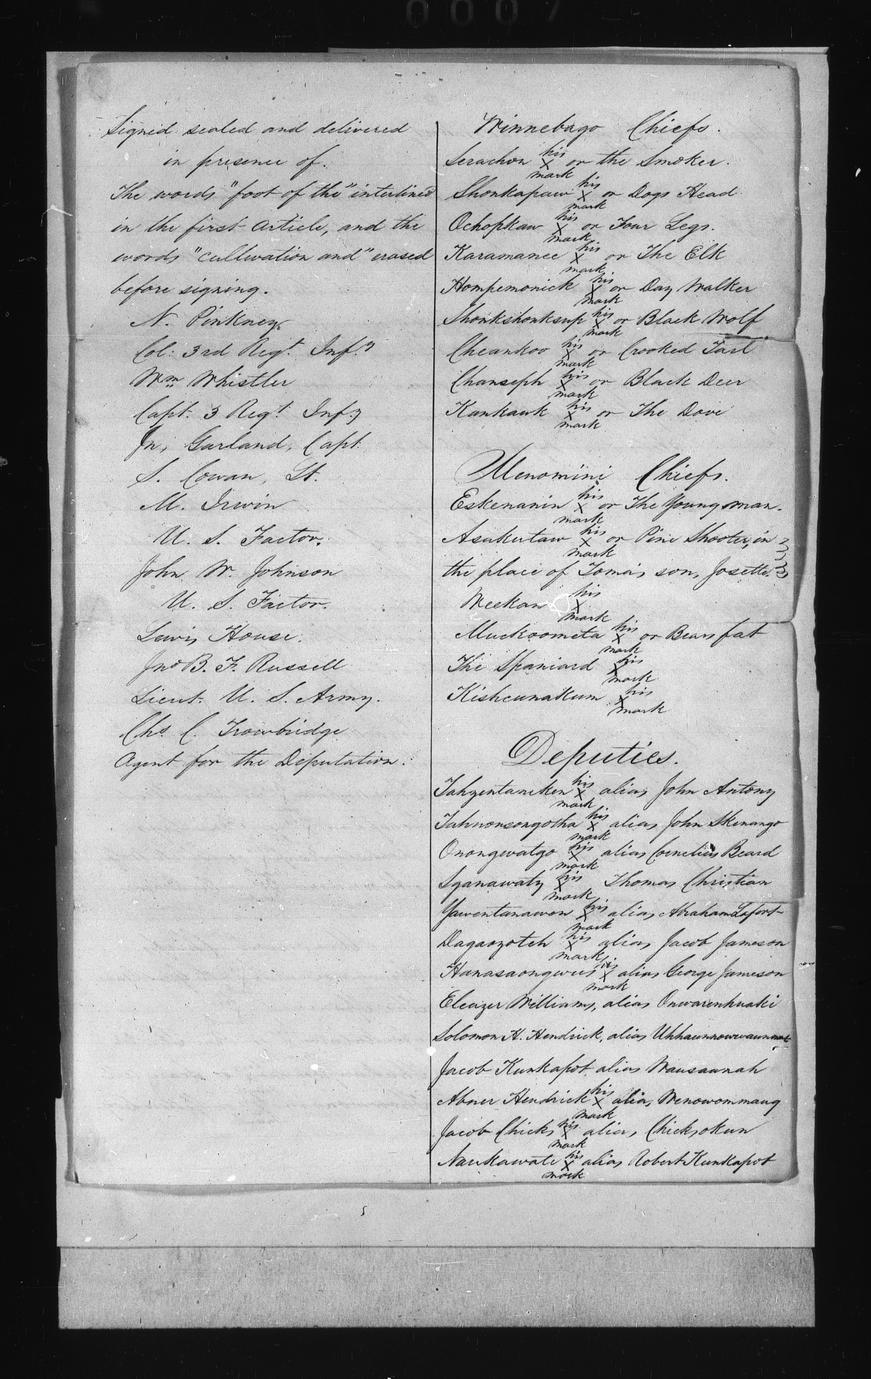 0007
Signed sealed and delivered
in presence of.
The words "foot of the" interlined
in the first article, and the
words "cultivation and" erased
before signing.
N. Pinkney,
Col: 3rd Regt. Infy
Wm Whistler
Capt. 3 Regt. Infy
Jn, Garland, Capt.
S. Cowan, Lt.
M. Irwin
U. S. Factor.
John W. Johnson
U. S. Factor.
Lewis House.
Jno B. F. Russell
Lieut. U. S. Army.
Chs. C. Trowbridge
Agent for the Deputation.
Winnebago Chiefs.
Serachon his X mark or the Smoker.
Shonkapaw his X mark or Dogs Head
Ochopkaw his X mark or Four Legs.
Karamanee his X mark or The Elk
Hompemonick his X mark or Day Walker
Shonkshonksup his X mark or Black Wolf
Cheankoo his X mark or Crooked Tail
Chanseph his X mark or Black Deer
Kankauk his X mark or The Dove
Menomini Chiefs.
Eskenanin his X mark or The Young man.
Asakertaw his X mark or Pine Shooter, in
the place of Toma's son, Josette.
Weekan his X mark
Muckoometa his X mark or Bears fat
The Spaniard his X mark
Kishcunakum his X mark
Deputies.
Tahyentaneken his X mark alias John Antony
Tahnonsongotha his X mark alias John Skenango
Onongwatgo his X mark alias Cornelius Beard
Sganawaty his X mark Thomas Christian
Yawentanawen his X mark alias Abraham Lafort
Dagaoyoteh his X mark alias Jacob Jameson
Hanasaongweis his X mark alias George Jameson
Eleazer Williams, alias Onwarenhuaki
Solomon H. Hendrick, alias
Jacob Kunkapot alias Wausaunah
Abner Hendrick his X mark alias Wenowommaug
Jacob Chicks his X mark alias Chicksokun
Naukawate his X mark alias Robert Kunkapot
5